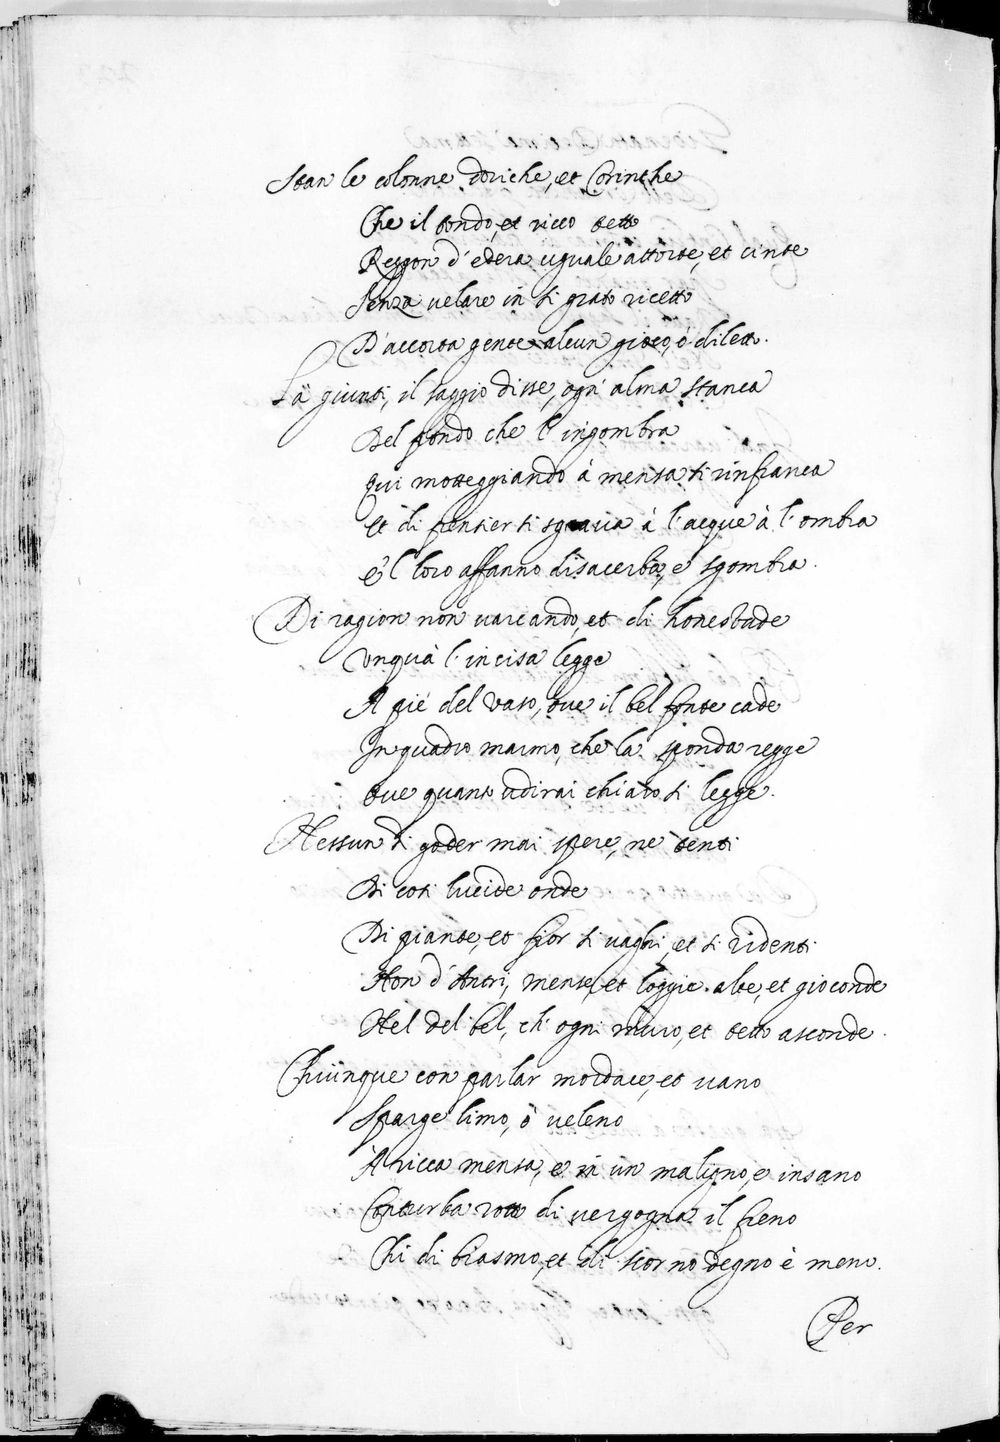 Stan le colonne doriche, et Corinthe
Che il tondo, et ricco tetto
Reggon d'edera uguale attorte, et cinte
Senza velare in sì grato ricetto
D'accorta gente alcun gioco, ò diletto.
Là giunti, il saggio disse, ogn'alma stanca
Del pondo che l'ingombra
Qui motteggiando à mensa si rinfranca
Et di pensier si sgravia à l'acque à l'ombra
E'l loro affanno disacerba, e sgombra.
Di ragion non varcando, et di honestade
Unquà l'incisa legge
A piè del vaso, ove il bel fonte cade
In quadro marmo, che la sponda regge
Ove quanto udirai chiaro si legge.
Nessun di goder mai spere, nè tenti
Di così lucide onde
Di piante, et fior sì vaghi, et sì ridenti
Non d'Antri, mense, et loggie alte, et gioconde
Nel del bel, ch'ogni muro, et tetto asconde.
Chiunque con parlar mordace, et vano
Sparge limo, ò veleno
À ricca mensa, e in un maligno, e insano
Conturba rotto di vergogna il freno
Chi di biasmo, et di scorno degno è meno.
Per